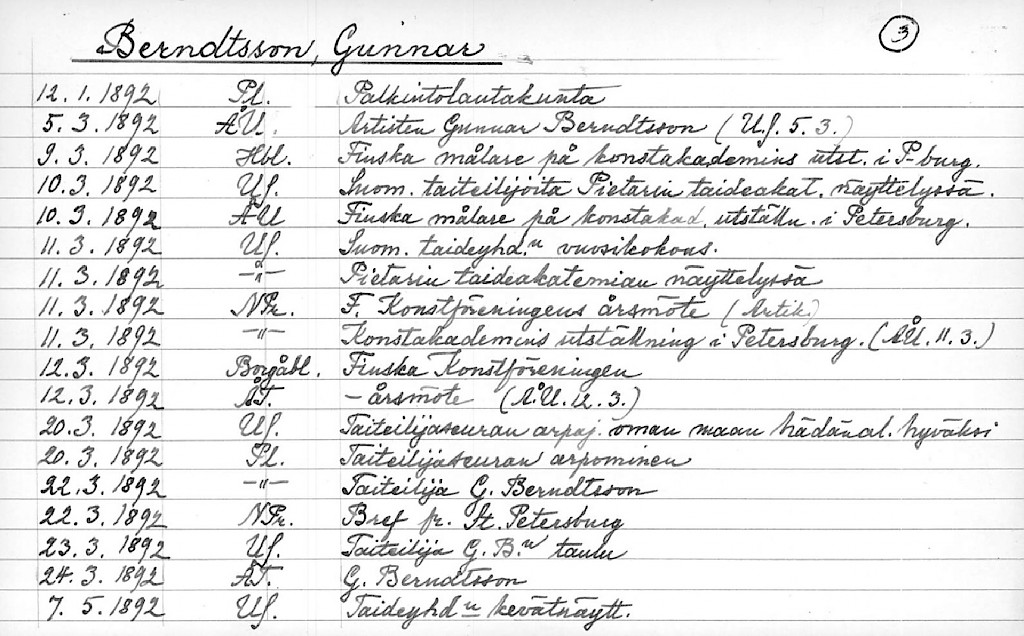 Berndtsson, Gunnar 3
12. 1. 1892 Pl. Palkintolautakunta
5. 3. 1892 ÅU. Artisten Gunnar Berndtsson (Us. 5. 3.)
9. 3. 1892 Hbl. Finska målare på konstakademins utst. i P-burg.
10. 3. 1892 Us. Suom. taiteilijoita Pietarin taideakat. näyttelyssä.
10. 3. 1892 ÅU Finska målare på konstakad. utställn. i Petersburg.
11. 3. 1892 Us. Suom. taideyhd.n vuosikokous.
11. 3. 1892 –"– Pietarin taideakatemian näyttelyssä
11. 3. 1892 NPr. F. Konstföreningens årsmöte (Artik.)
11. 3. 1892 –"– Konstakademins utställning i Petersburg. (ÅU. 11. 3.)
12. 3. 1892 Borgåbl. Finska Konstföreningen
12. 3. 1892 ÅT. – årsmöte (Å.U. 12. 3.)
20. 3. 1892 Us. Taiteilijaseuran arpaj. oman maan hädänal. hyväksi
20. 3. 1892 Pl. Taiteilijaseuran arpominen
22. 3. 1892 –"– Taiteilija G. Berndtsson
22. 3. 1892 NPr. Bref fr. St. Petersburg
23. 3. 1892 Us. Taiteilija G. B.n taulu
24. 3. 1892 ÅT. G. Berndtsson
7. 5. 1892 Us. Taideyhd n kevätnäytt.